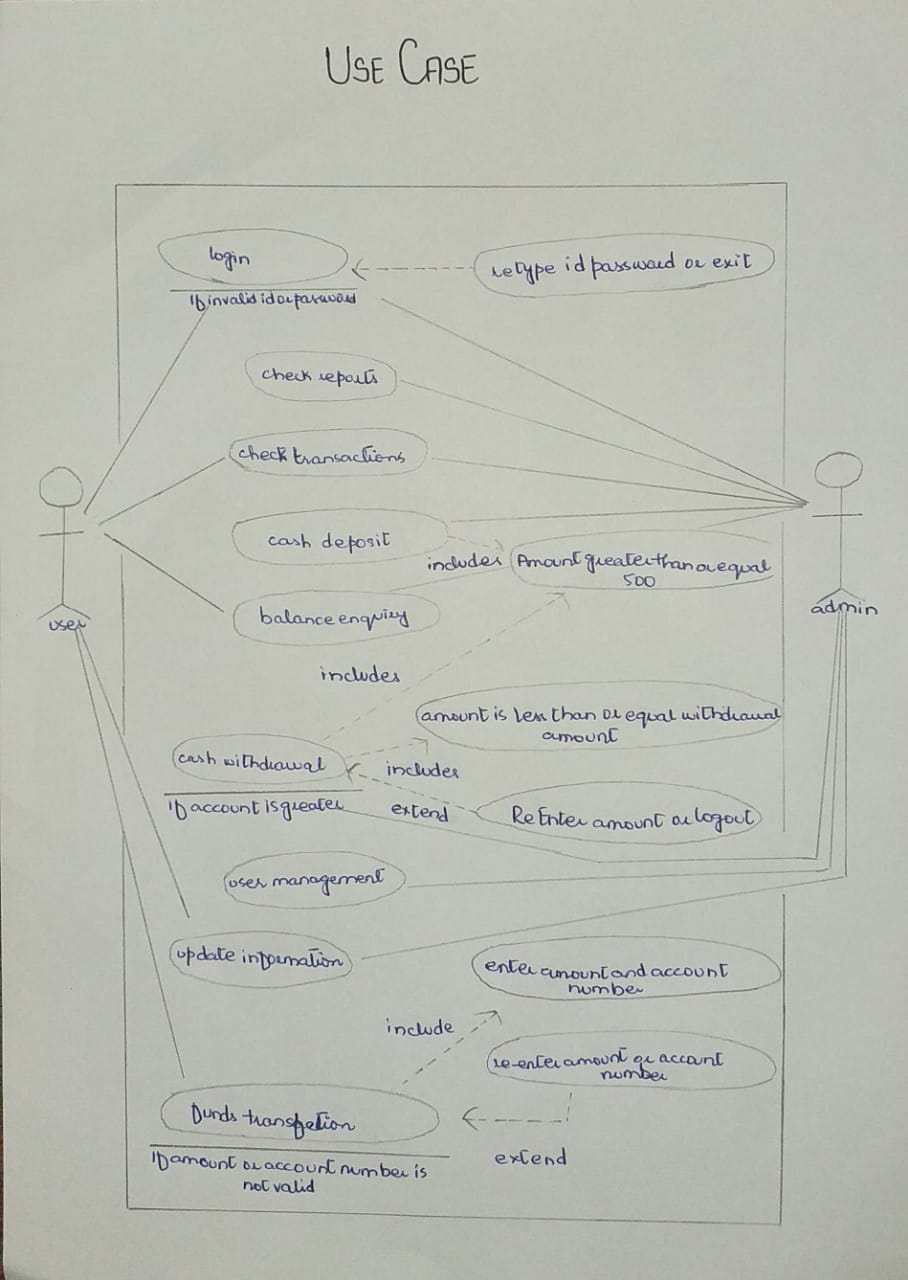 USE CASE
login
retype id password or exit
If invalid id or password
check reports
check transactions
cash deposit
includes
Amount greater than or equal
500
balance enquiry
user
admin
includes
amount is less than or equal withdrawal
amount
cash withdrawal
includes
If account is greater
extend
ReEnter amount or logout
user management
update information
enter amount and account
number
include
re-enter amount or account
number
funds transfetion
extend
If amount or account number is
not valid